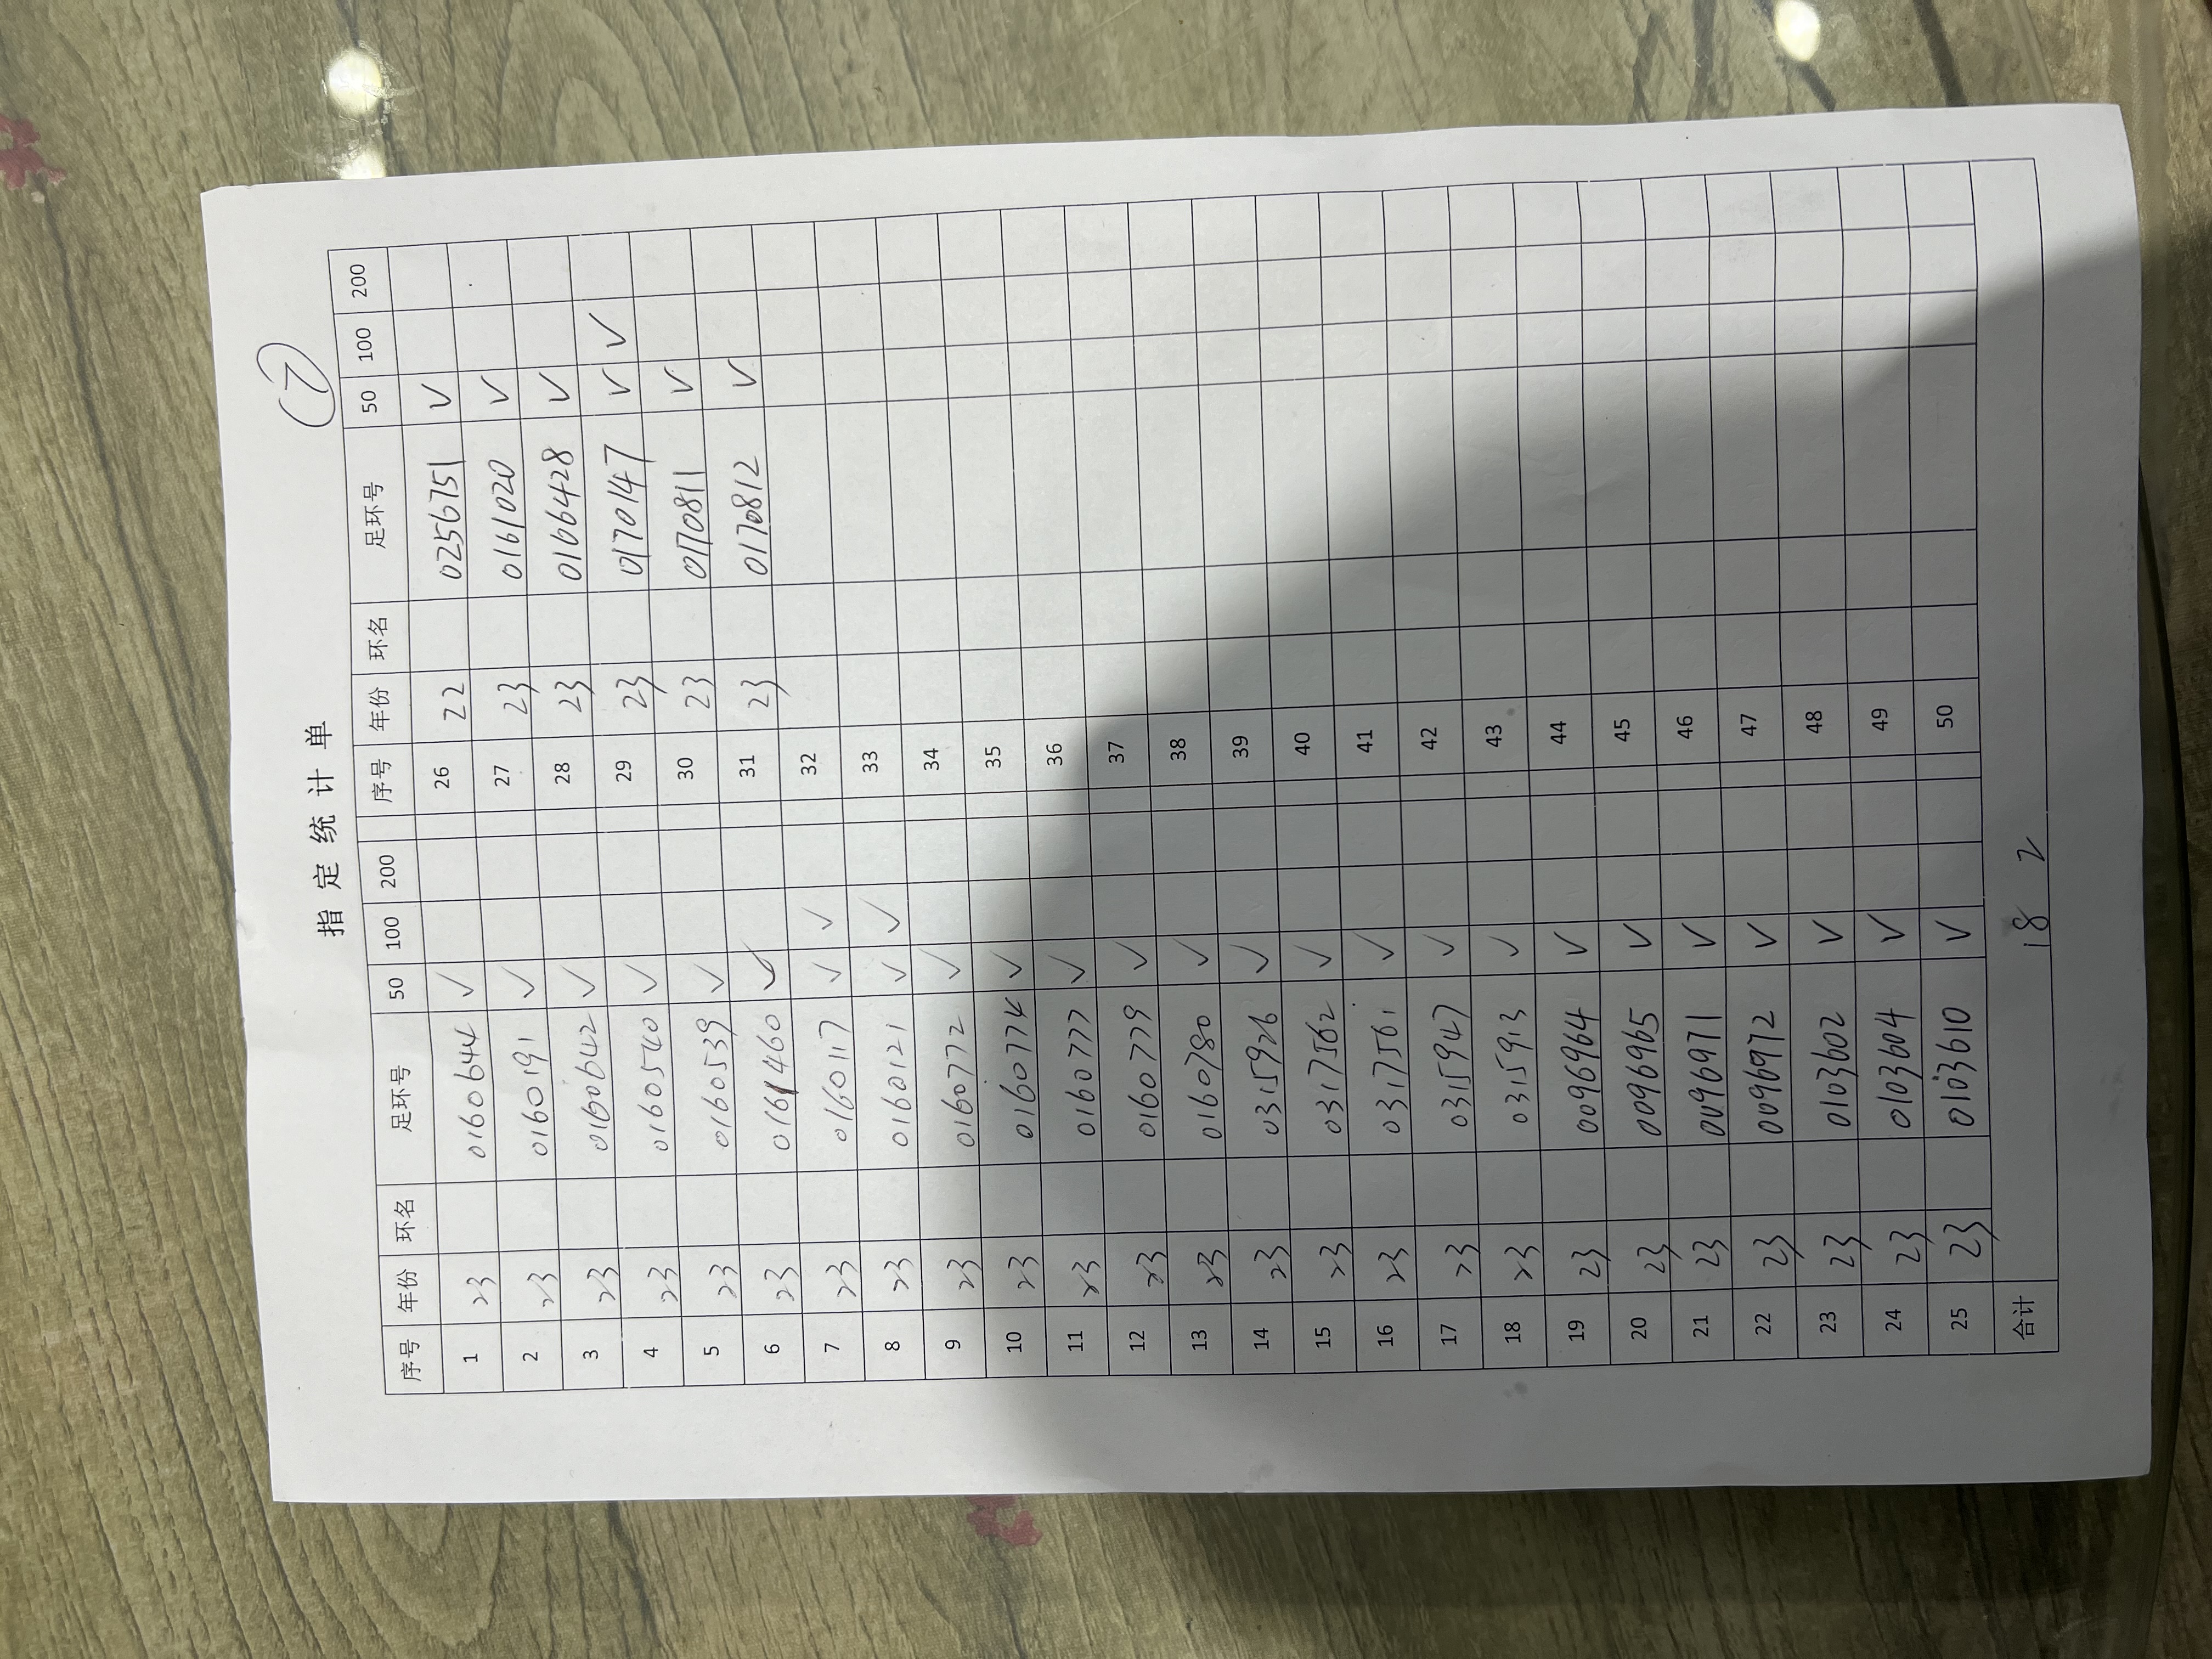 ②
指定统计单
序号 年份 环名 足环号 50 100 200 序号 年份 环名 足环号 50 100 200
1 23 0160644 ✓ 26 22 0256751 ✓
2 23 0160191 ✓ 27 23 0161020 ✓
3 23 0160642 ✓ 28 23 0166428 ✓
4 23 0160540 ✓ 29 23 0170147 ✓ ✓
5 23 0160539 ✓ 30 23 0170811 ✓
6 23 0161460 ✓ 31 23 0170812 ✓
7 23 0160117 ✓ ✓ 32
8 23 0160121 ✓ ✓ 33
9 23 0160772 ✓ 34
10 23 0160774 ✓ 35
11 23 0160777 ✓ 36
12 23 0160779 ✓ 37
13 23 0160780 ✓ 38
14 23 0315926 ✓ 39
15 23 0317562 ✓ 40
16 23 0317561 ✓ 41
17 23 0315947 ✓ 42
18 23 0315913 ✓ 43
19 23 0096964 ✓ 44
20 23 0096965 ✓ 45
21 23 0096971 ✓ 46
22 23 0096972 ✓ 47
23 23 0103602 ✓ 48
24 23 0103604 ✓ 49
25 23 0103610 ✓ 50
合计 18 2